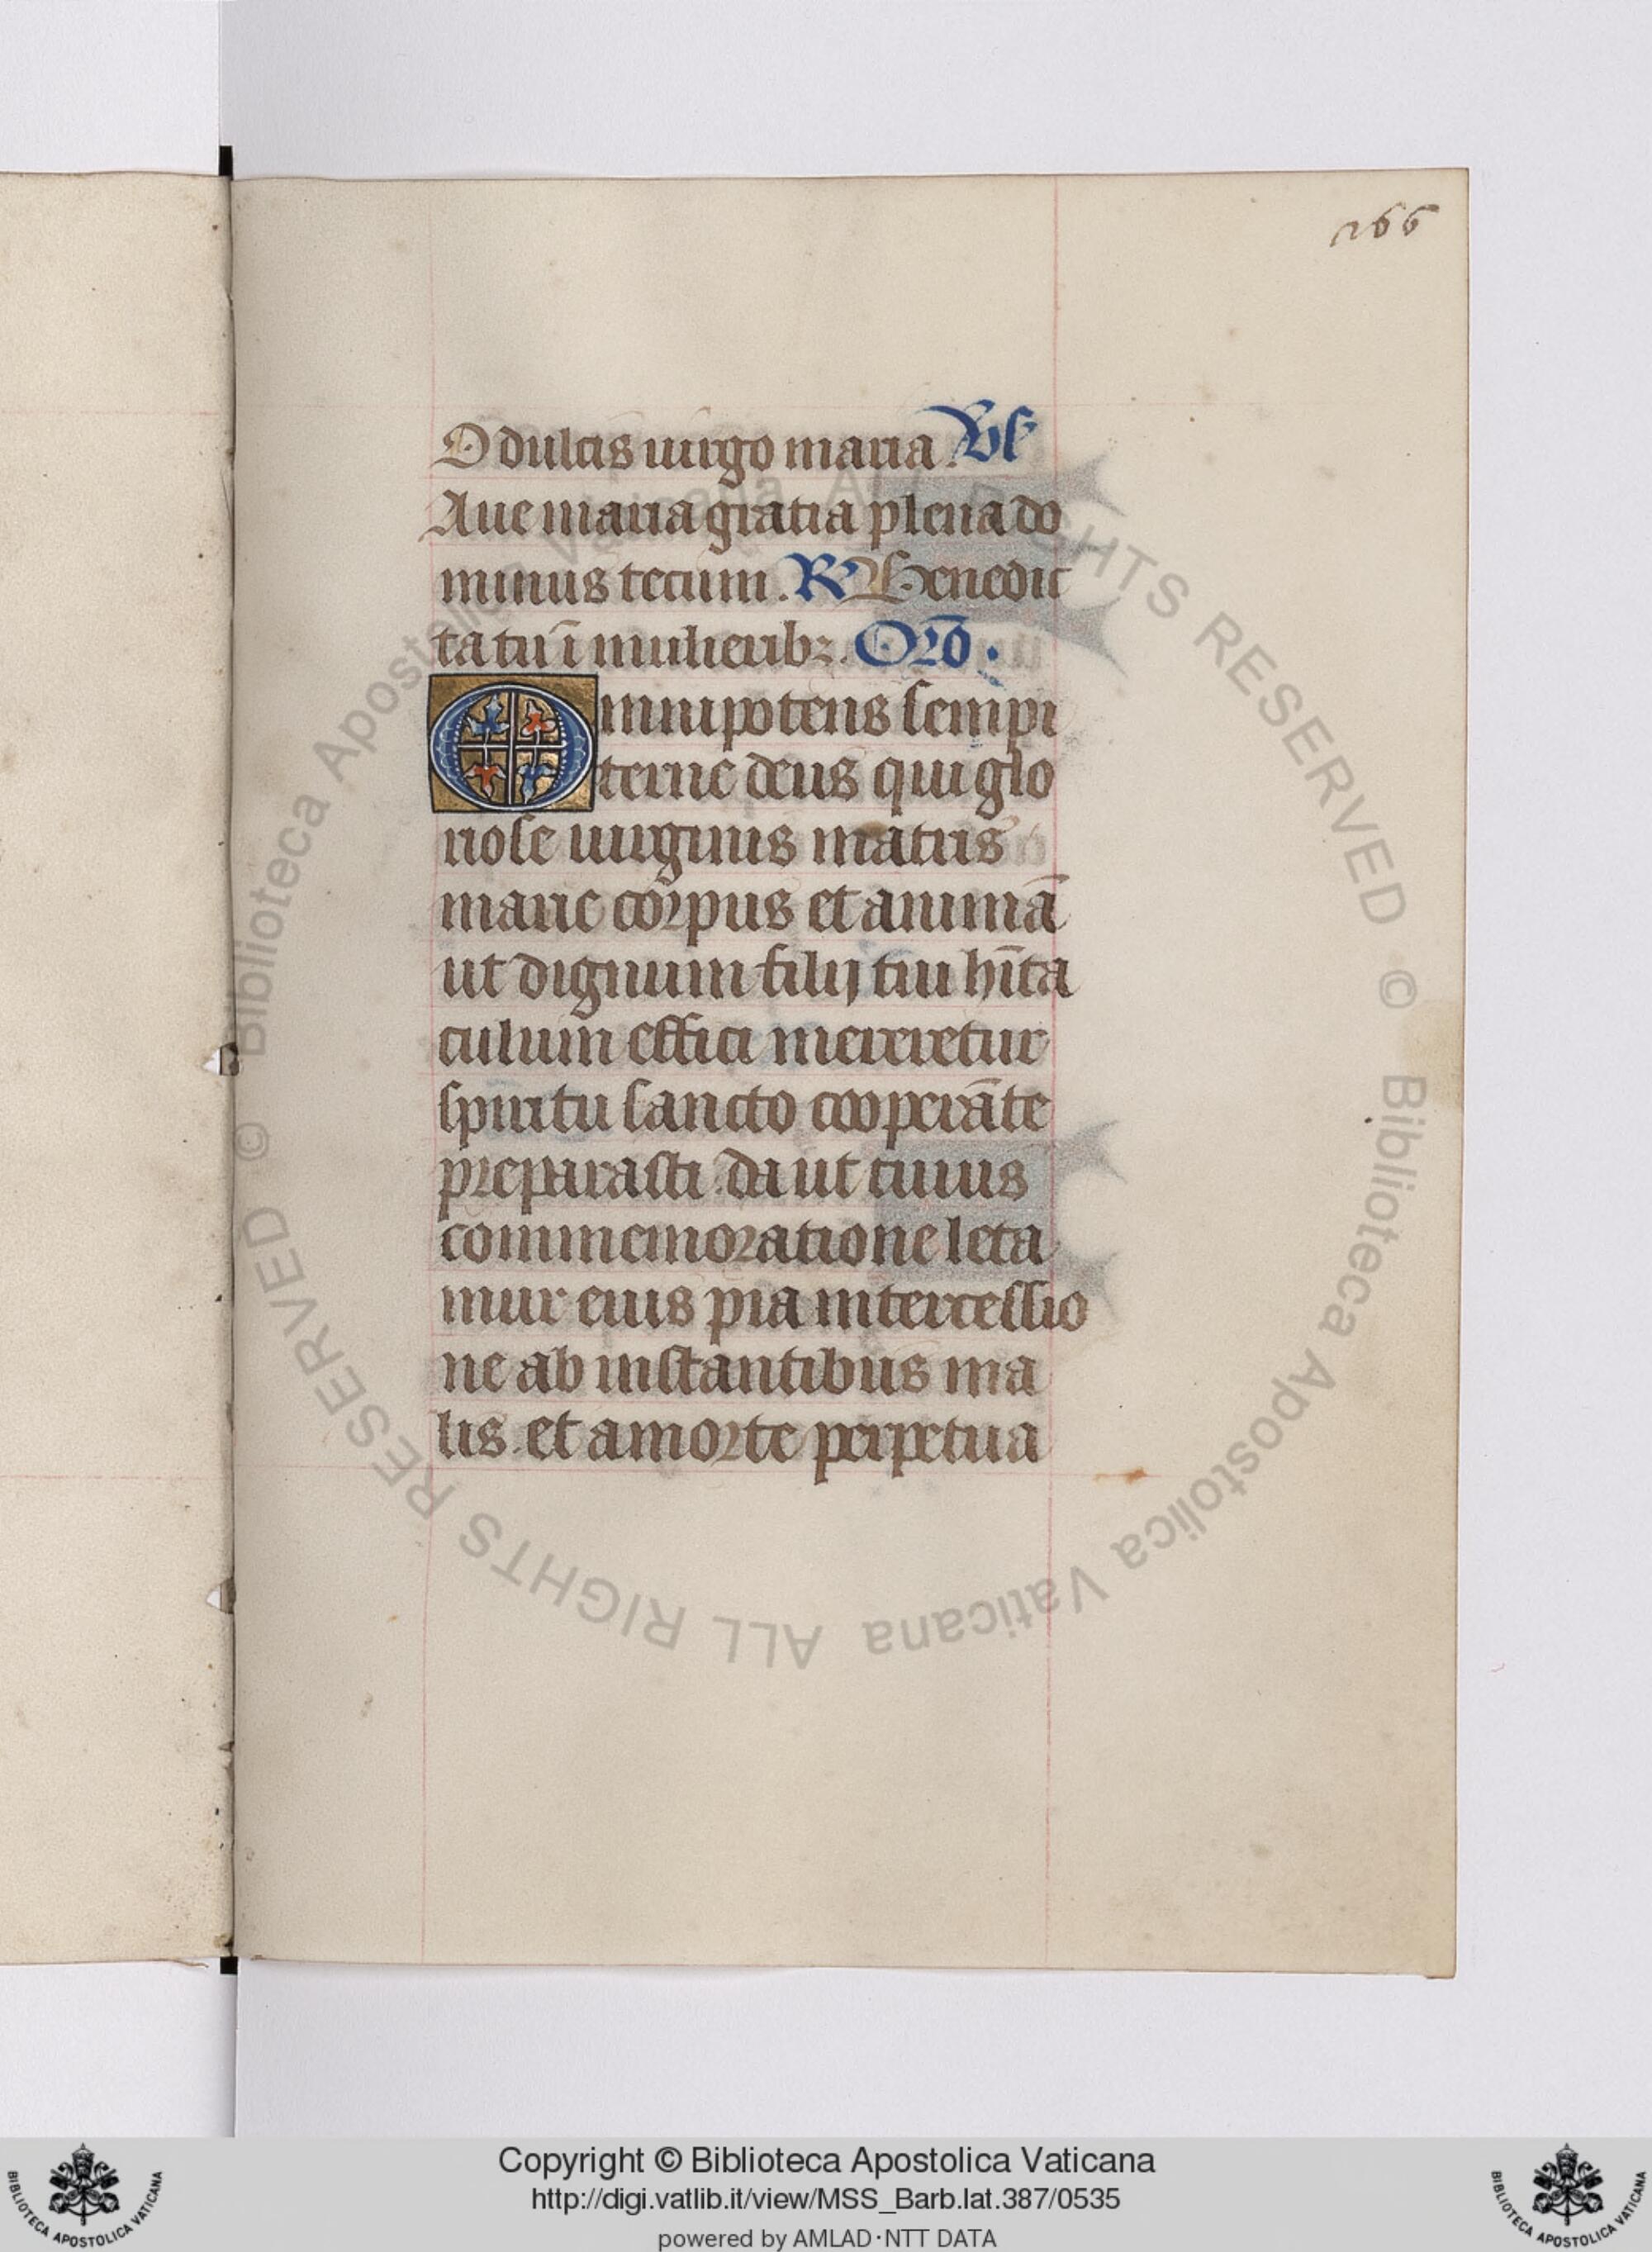 266
O dulcis uirgo maria. Vs
Aue maria gratia plena do
minus tecum. R Benedic
ta tu ī mulieribꝫ. Orō.
Omnipotens sempi
terne deus qui glo
riose uirginis matris
marie corpus et animā
ut dignum filij tui hīta
culum effici mereretur
spiritu sancto cooperāte
preparasti. da ut cuius
commemoratione leta
mur eius pia intercessio
ne ab instantibus ma
lis. et a morte perpetua
© Biblioteca Apostolica Vaticana ALL RIGHTS RESERVED © Biblioteca Apostolica Vaticana ALL RIGHTS RESERVED
Copyright © Biblioteca Apostolica Vaticana
http://digi.vatlib.it/view/MSS_Barb.lat.387/0535
powered by AMLAD·NTT DATA
BIBLIOTECA APOSTOLICA VATICANA
BIBLIOTECA APOSTOLICA VATICANA